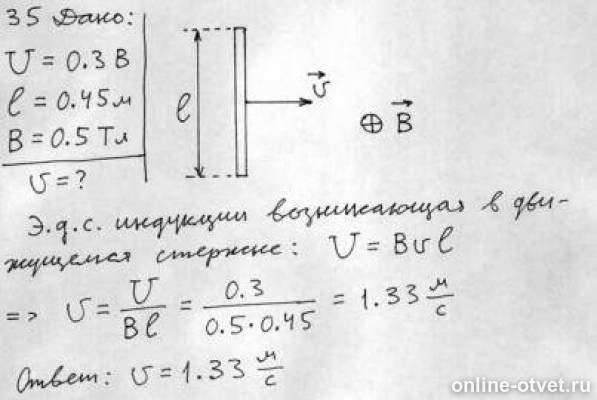 35 Дано:
U = 0.3 В
l = 0.45 м
B = 0.5 Тл
v = ?
l
v⃗
⊕ B⃗
Э.д.с. индукции возникающая в дви-
жущемся стержне: U = Bvl
=> v = U / Bl = 0.3 / 0.5·0.45 = 1.33 м/с
Ответ: v = 1.33 м/с
online-otvet.ru